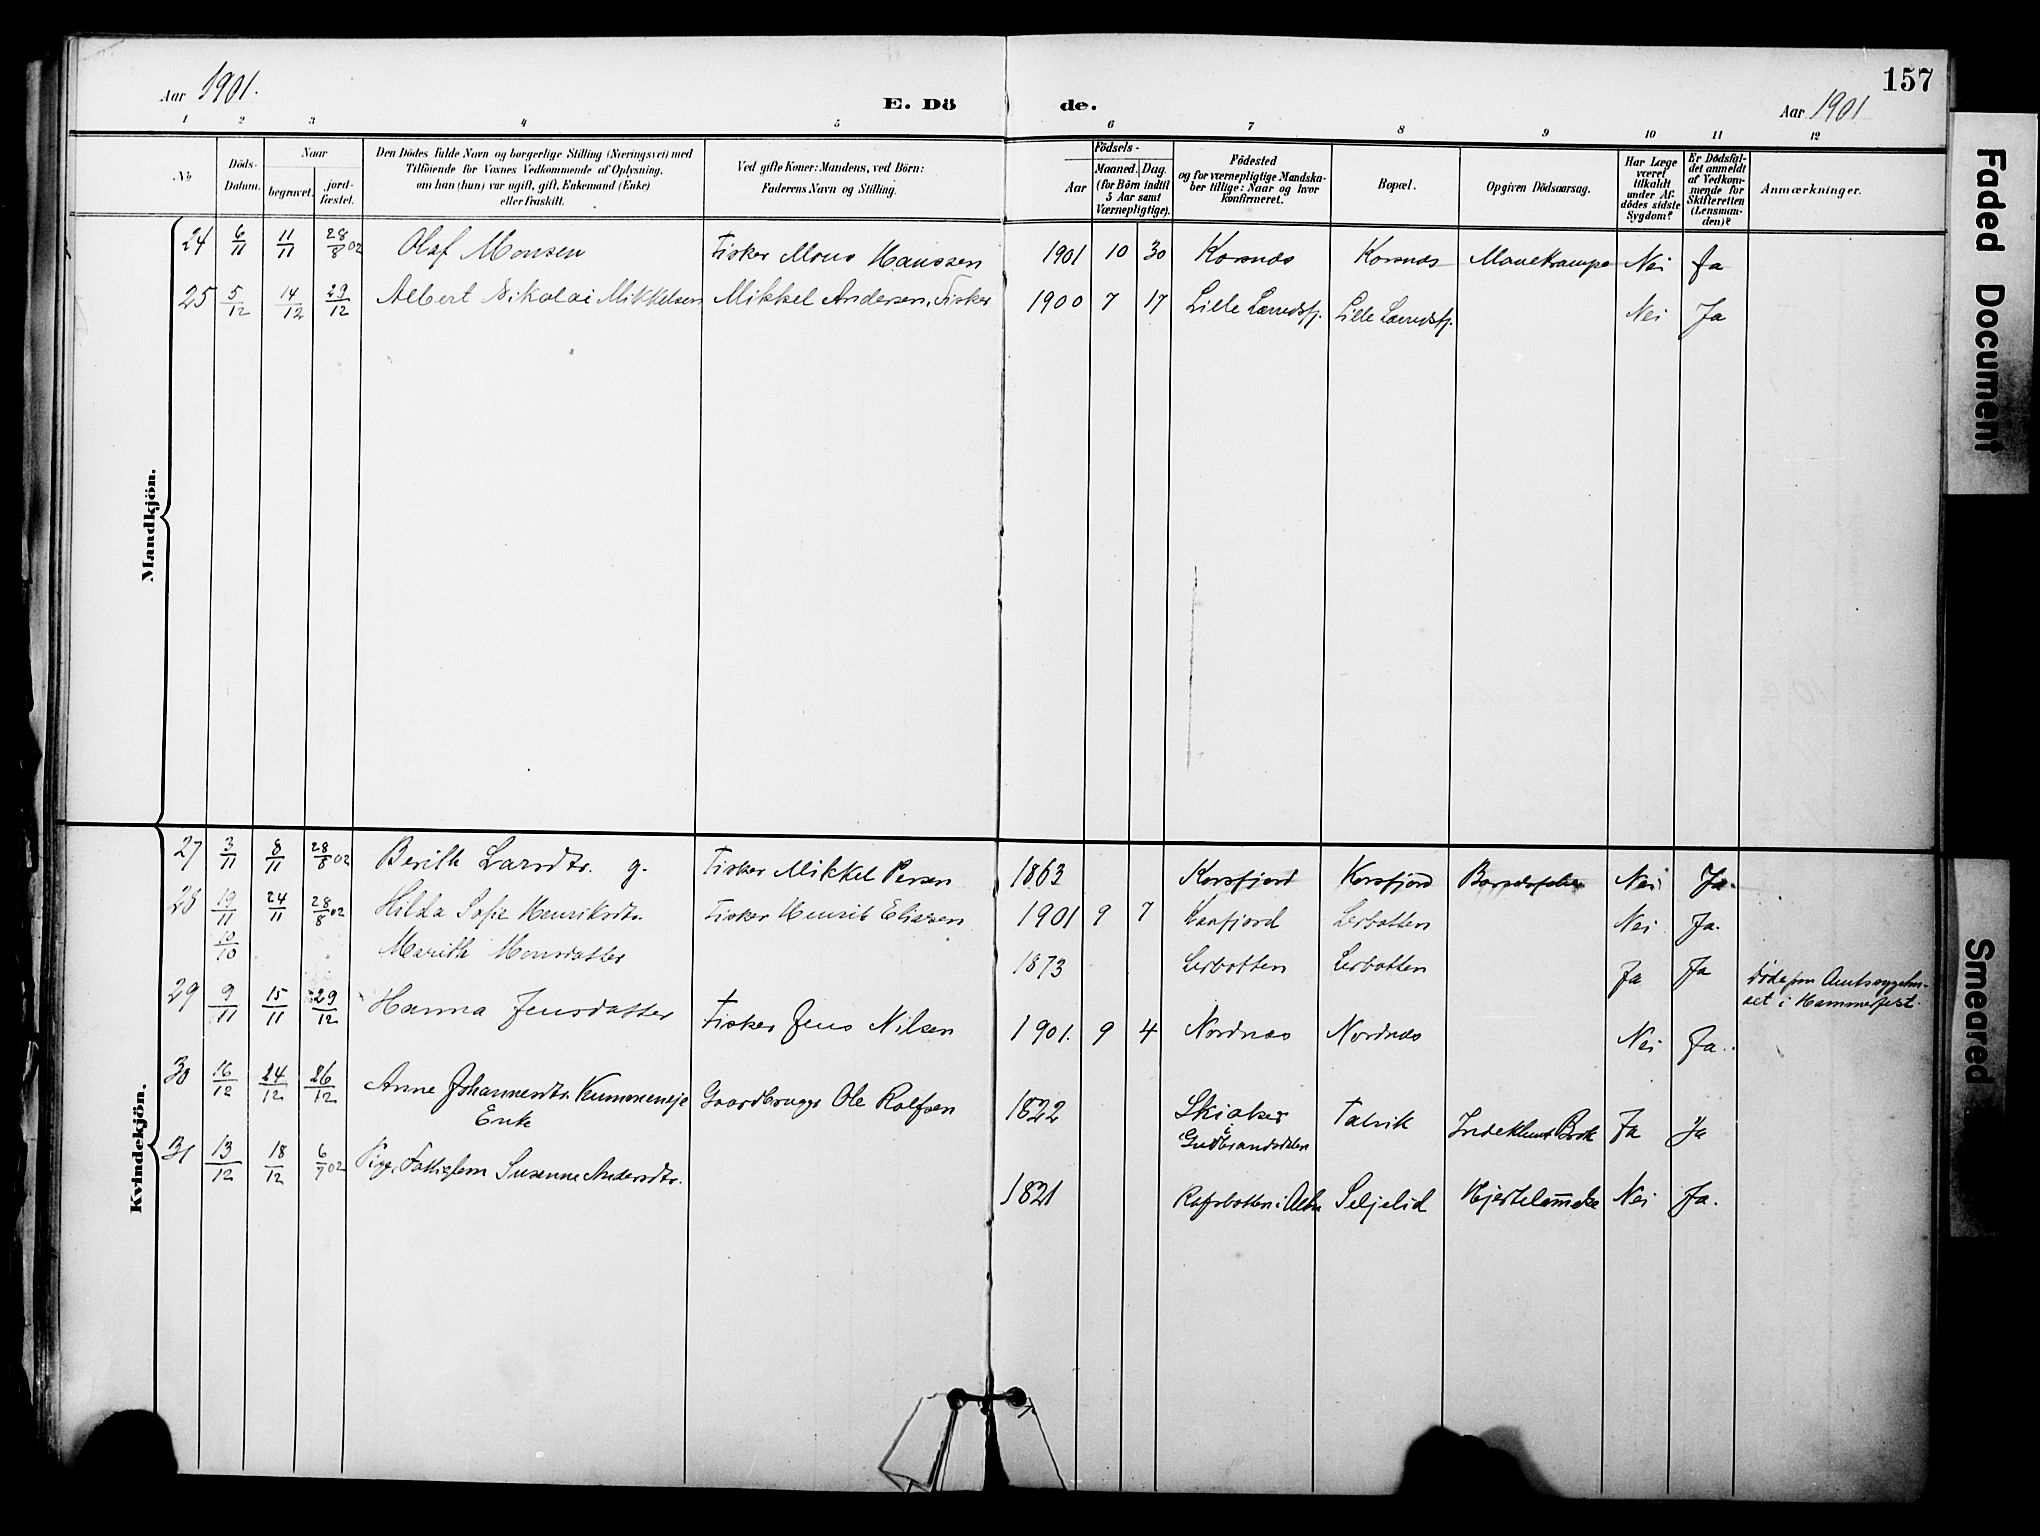 157
Aar 1901.
E. Dö
de.
Aar 1901
1 2 3 4 5 6 7 8 9 10 11 12
No
Döds-
Datum.
Naar
begravet.
jord-
fæstet.
Den Dödes fulde Navn og borgerlige Stilling (Næringsvei) med
Tilföiende for Voxnes Vedkommende af Oplysning,
om han (hun) var ugift, gift, Enkemand (Enke)
eller fraskilt.
Ved gifte Koner: Mandens, ved Börn:
Faderens Navn og Stilling.
Födsels-
Aar
Maaned.
Dag.
(for Börn indtil
5 Aar samt
Værnepligtige).
Födested
og for værnepligtige Mandska-
ber tillige: Naar og hvor
konfirmeret.
Bopæl.
Opgiven Dödsaarsag.
Har Læge
været
tilkaldt
under Af-
dödes sidste
Sygdom?
Er Dödsfal-
det anmeldt
af Vedkom-
mende for
Skifteretten
(Lensman-
den)?
Anmærkninger.
Mandkjön.
24 6/11 11/11 28/8 02 Olaf Monsen Fisker Mons Hanssen 1901 10 30 Korsnæs Korsnæs Mavekrampe Nei Ja
25 5/12 14/12 29/12 Albert Nikolai Mikkelsen Mikkel Andersen, Fisker 1900 7 17 Lille Lerredsfj. Lille Lerredsfj. Nei Ja
Kvindekjön.
27 3/11 8/11 28/8 02 Berith Larsdtr. g. Fisker Mikkel Persen 1863 Korsfjord Korsfjord Nei Ja.
28 19/11 24/11 28/8 02 Hilda Sofie Henriksdtr. Fisker Henrik Eliasen 1901 9 7 Lerbotten Nei Ja.
10/10 Marith Monsdatter 1873 Lerbotten Lerbotten Ja Ja Døde paa Amtssygehu-
set i Hammerfest.
29 9/11 15/11 29/12 Hanna Jensdatter Fisker Jens Nilsen 1901. 9 4 Nordnæs Nordnæs Nei Ja.
30 16/12 24/12 26/12 Anne Johannesdtr. Kummeneje Gaardbruger Ole Rolfsen 1822 Skiaker Talvik Indeklemt Brok Ja Ja
Enke
i
Gudbrandsdalen
31 13/12 18/12 6/7 02 Pige, Fattiglem Susanne Andersdtr. 1821 Rafsbotten i Alten Seljelid Hjertelammelse Nei Ja.
Faded Document
Smeared